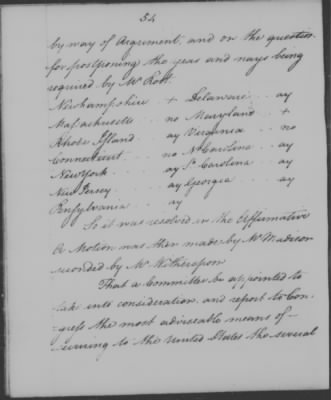 54
by way of Argument; and on the question
for postponing the yeas and nays being
required by Mr Root.
Newhampshire + Delaware ay
Massachusetts no Maryland +
Rhode Island ay Virginia no
Connecticut no No Carolina ay
New York ay So Carolina ay
New Jersey ay Georgia ay
Pensylvania ay
So it was resolved in the Affirmative
A Motion was then made by Mr Madison
seconded by Mr Witherspoon
That a Committee be appointed to
take into consideration and report to Con-
gress the most adviseable means of
securing to the United States the several